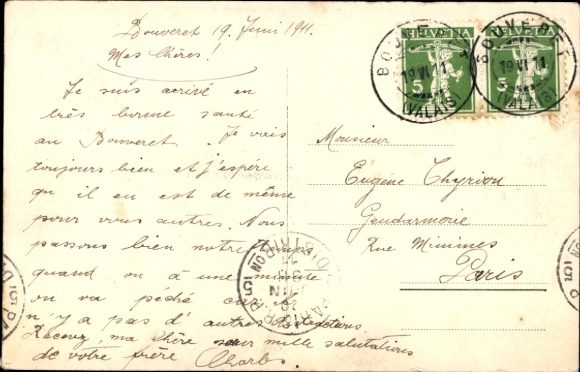 Bouveret 19 Juni 1911.
Mes Chères!
Je suis arrivé en
très bonne santé
au Bouveret. Je vais
toujours bien et j'espère
qu'il en est de même
pour vous autres. Nous
passons bien notre temps
quand on a une minute
on va pêché car il
n'y a pas d'autres
Recevez, ma chère sœur mille salutations
de votre frère Charles
HELVETIA
5
HELVETIA
5
BOUVERET
19 VI 11
(VALAIS)
BOUVERET
19 VI 11
(VALAIS)
Monsieur
Eugène Thyriou
Gendarmerie
Rue Minimes
Paris
PARIS
DISTRIBON